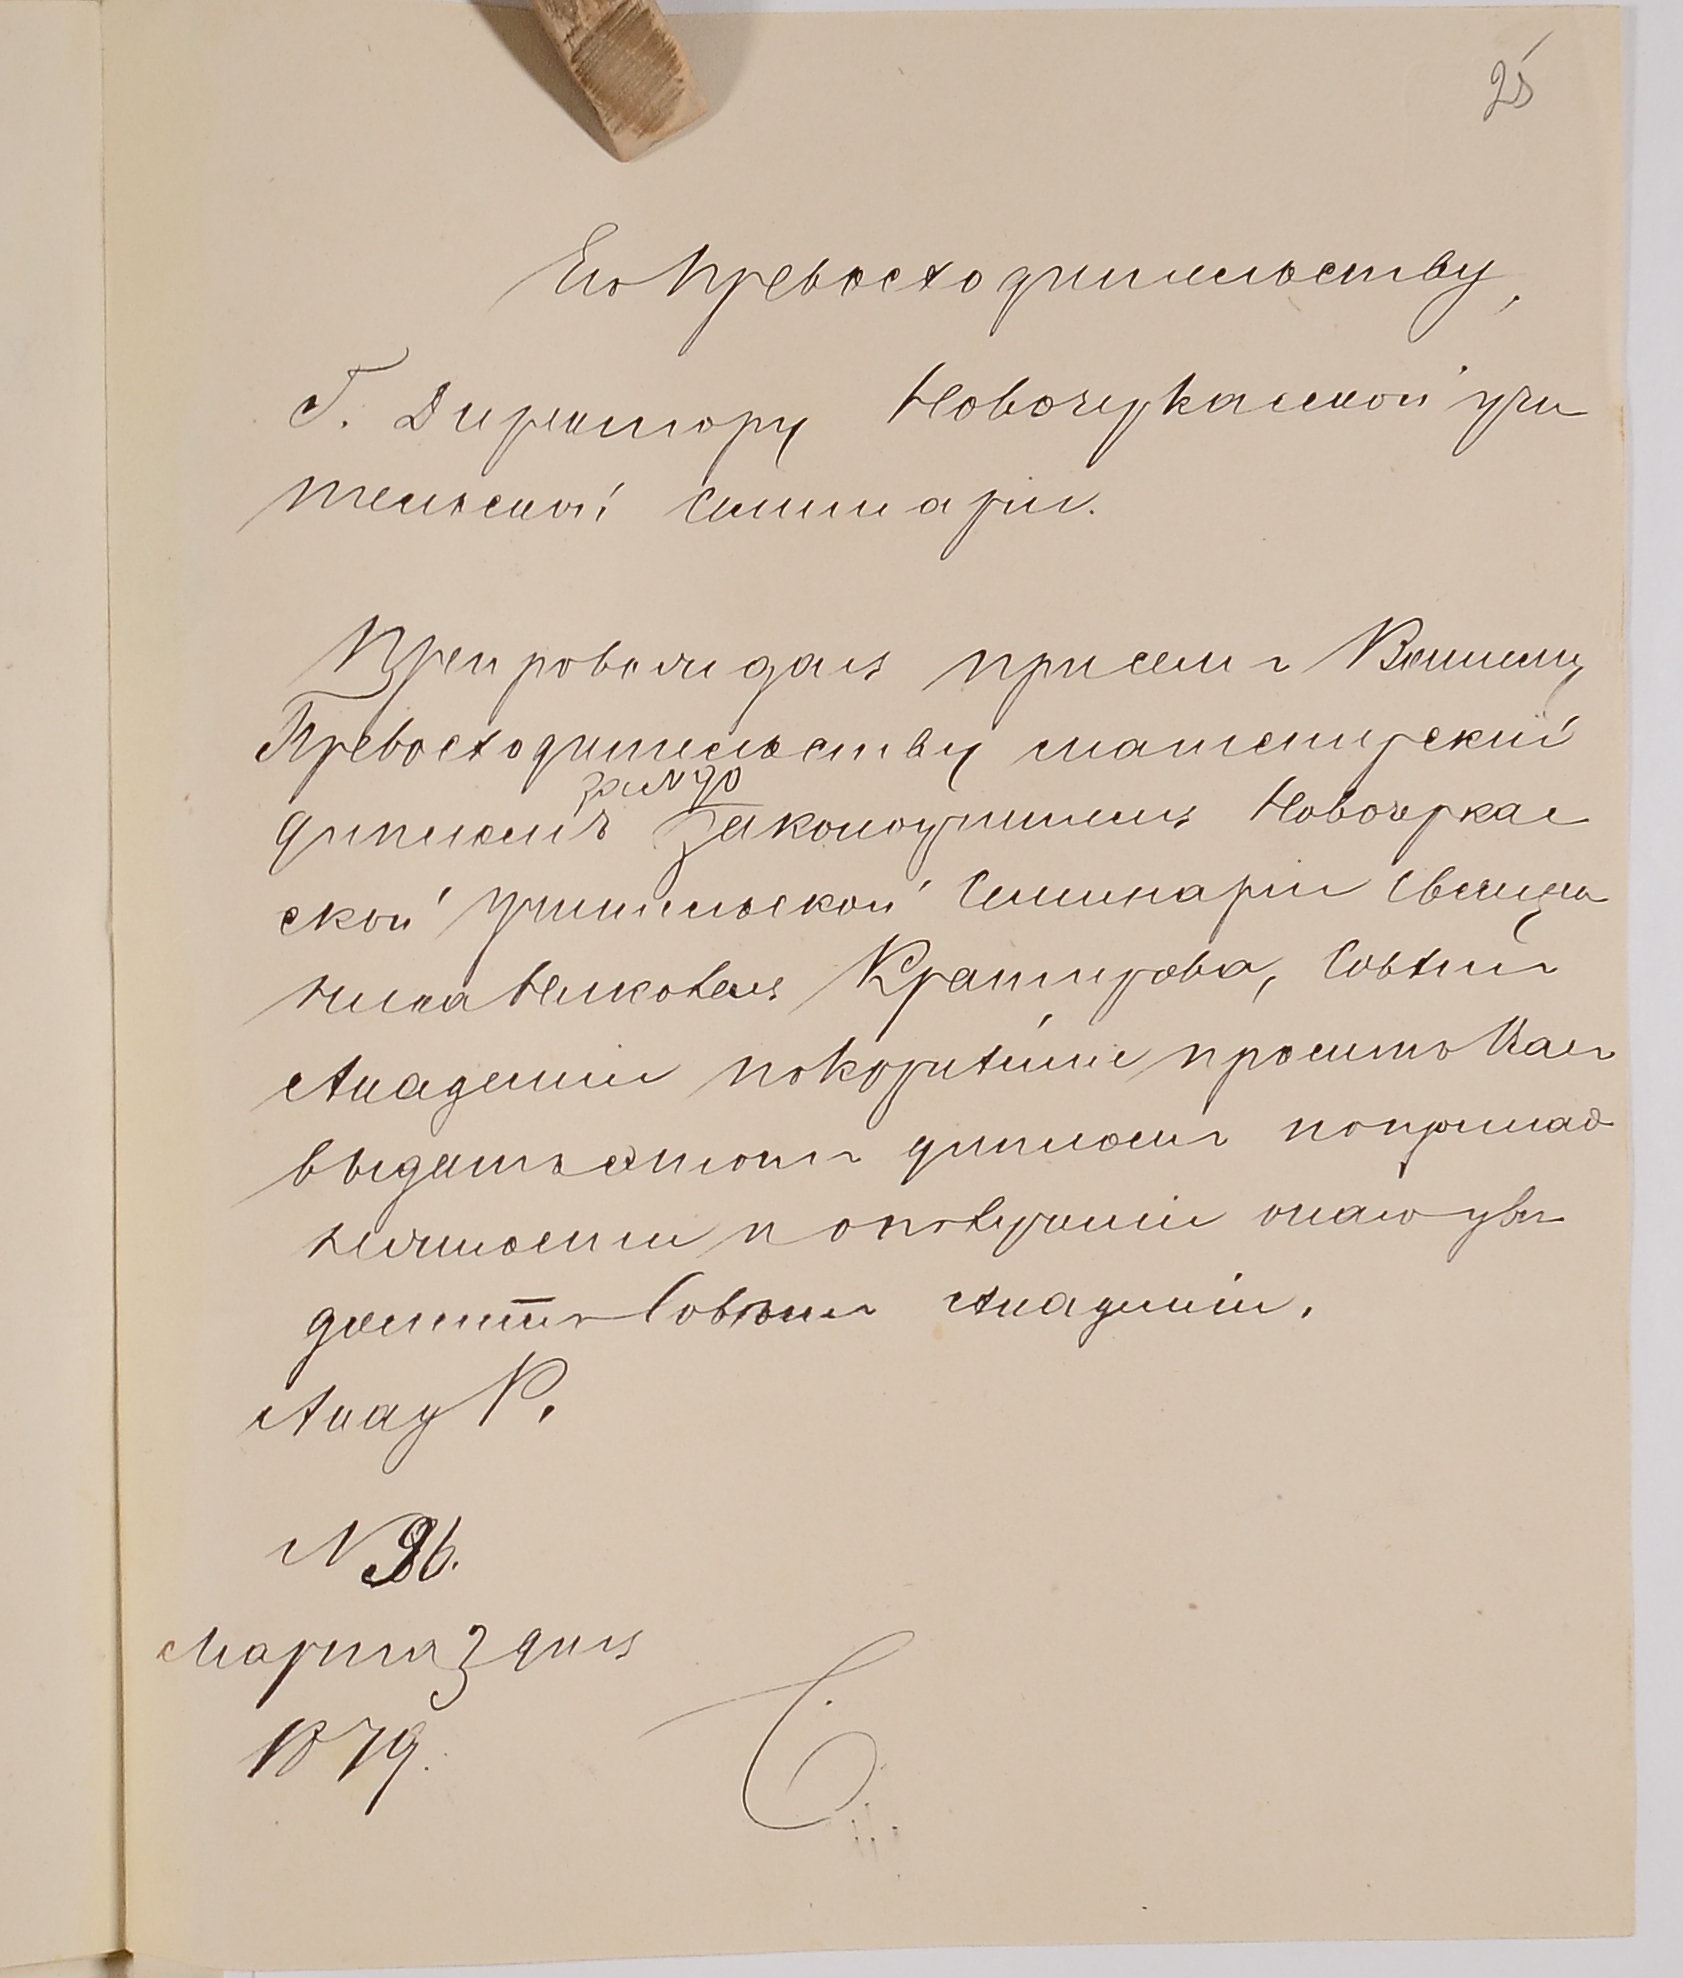 25
Его Превосходительству,
Г. Директору Новочеркасской учи
тельской Семинаріи.
Препровождая при семъ Вашему
Превосходительству магистерскій
за № 90
дипломъ Законоучителя Новочеркас
ской учительской Семинаріи Священ
ника Николая Кратирова, Совѣтъ
Академіи покорнѣйше проситъ Васъ
выдать этотъ дипломъ по принад
лежности и о полученіи онаго уве
домить Совѣтъ Академіи.
Акад Р.
N 96.
Марта 3 дня
1879.